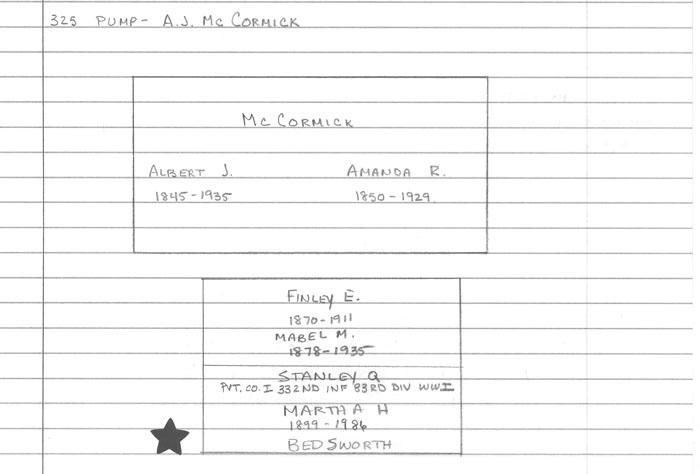 325 PUMP - A.J. Mc CORMICK
Mc CORMICK
ALBERT J. AMANDA R.
1845-1935 1850-1929
FINLEY E.
1870-1911
MABEL M.
1878-1935
STANLEY Q
PVT. CO. I 332ND INF 83RD DIV WWI
MARTHA H
1899-1986
BEDSWORTH